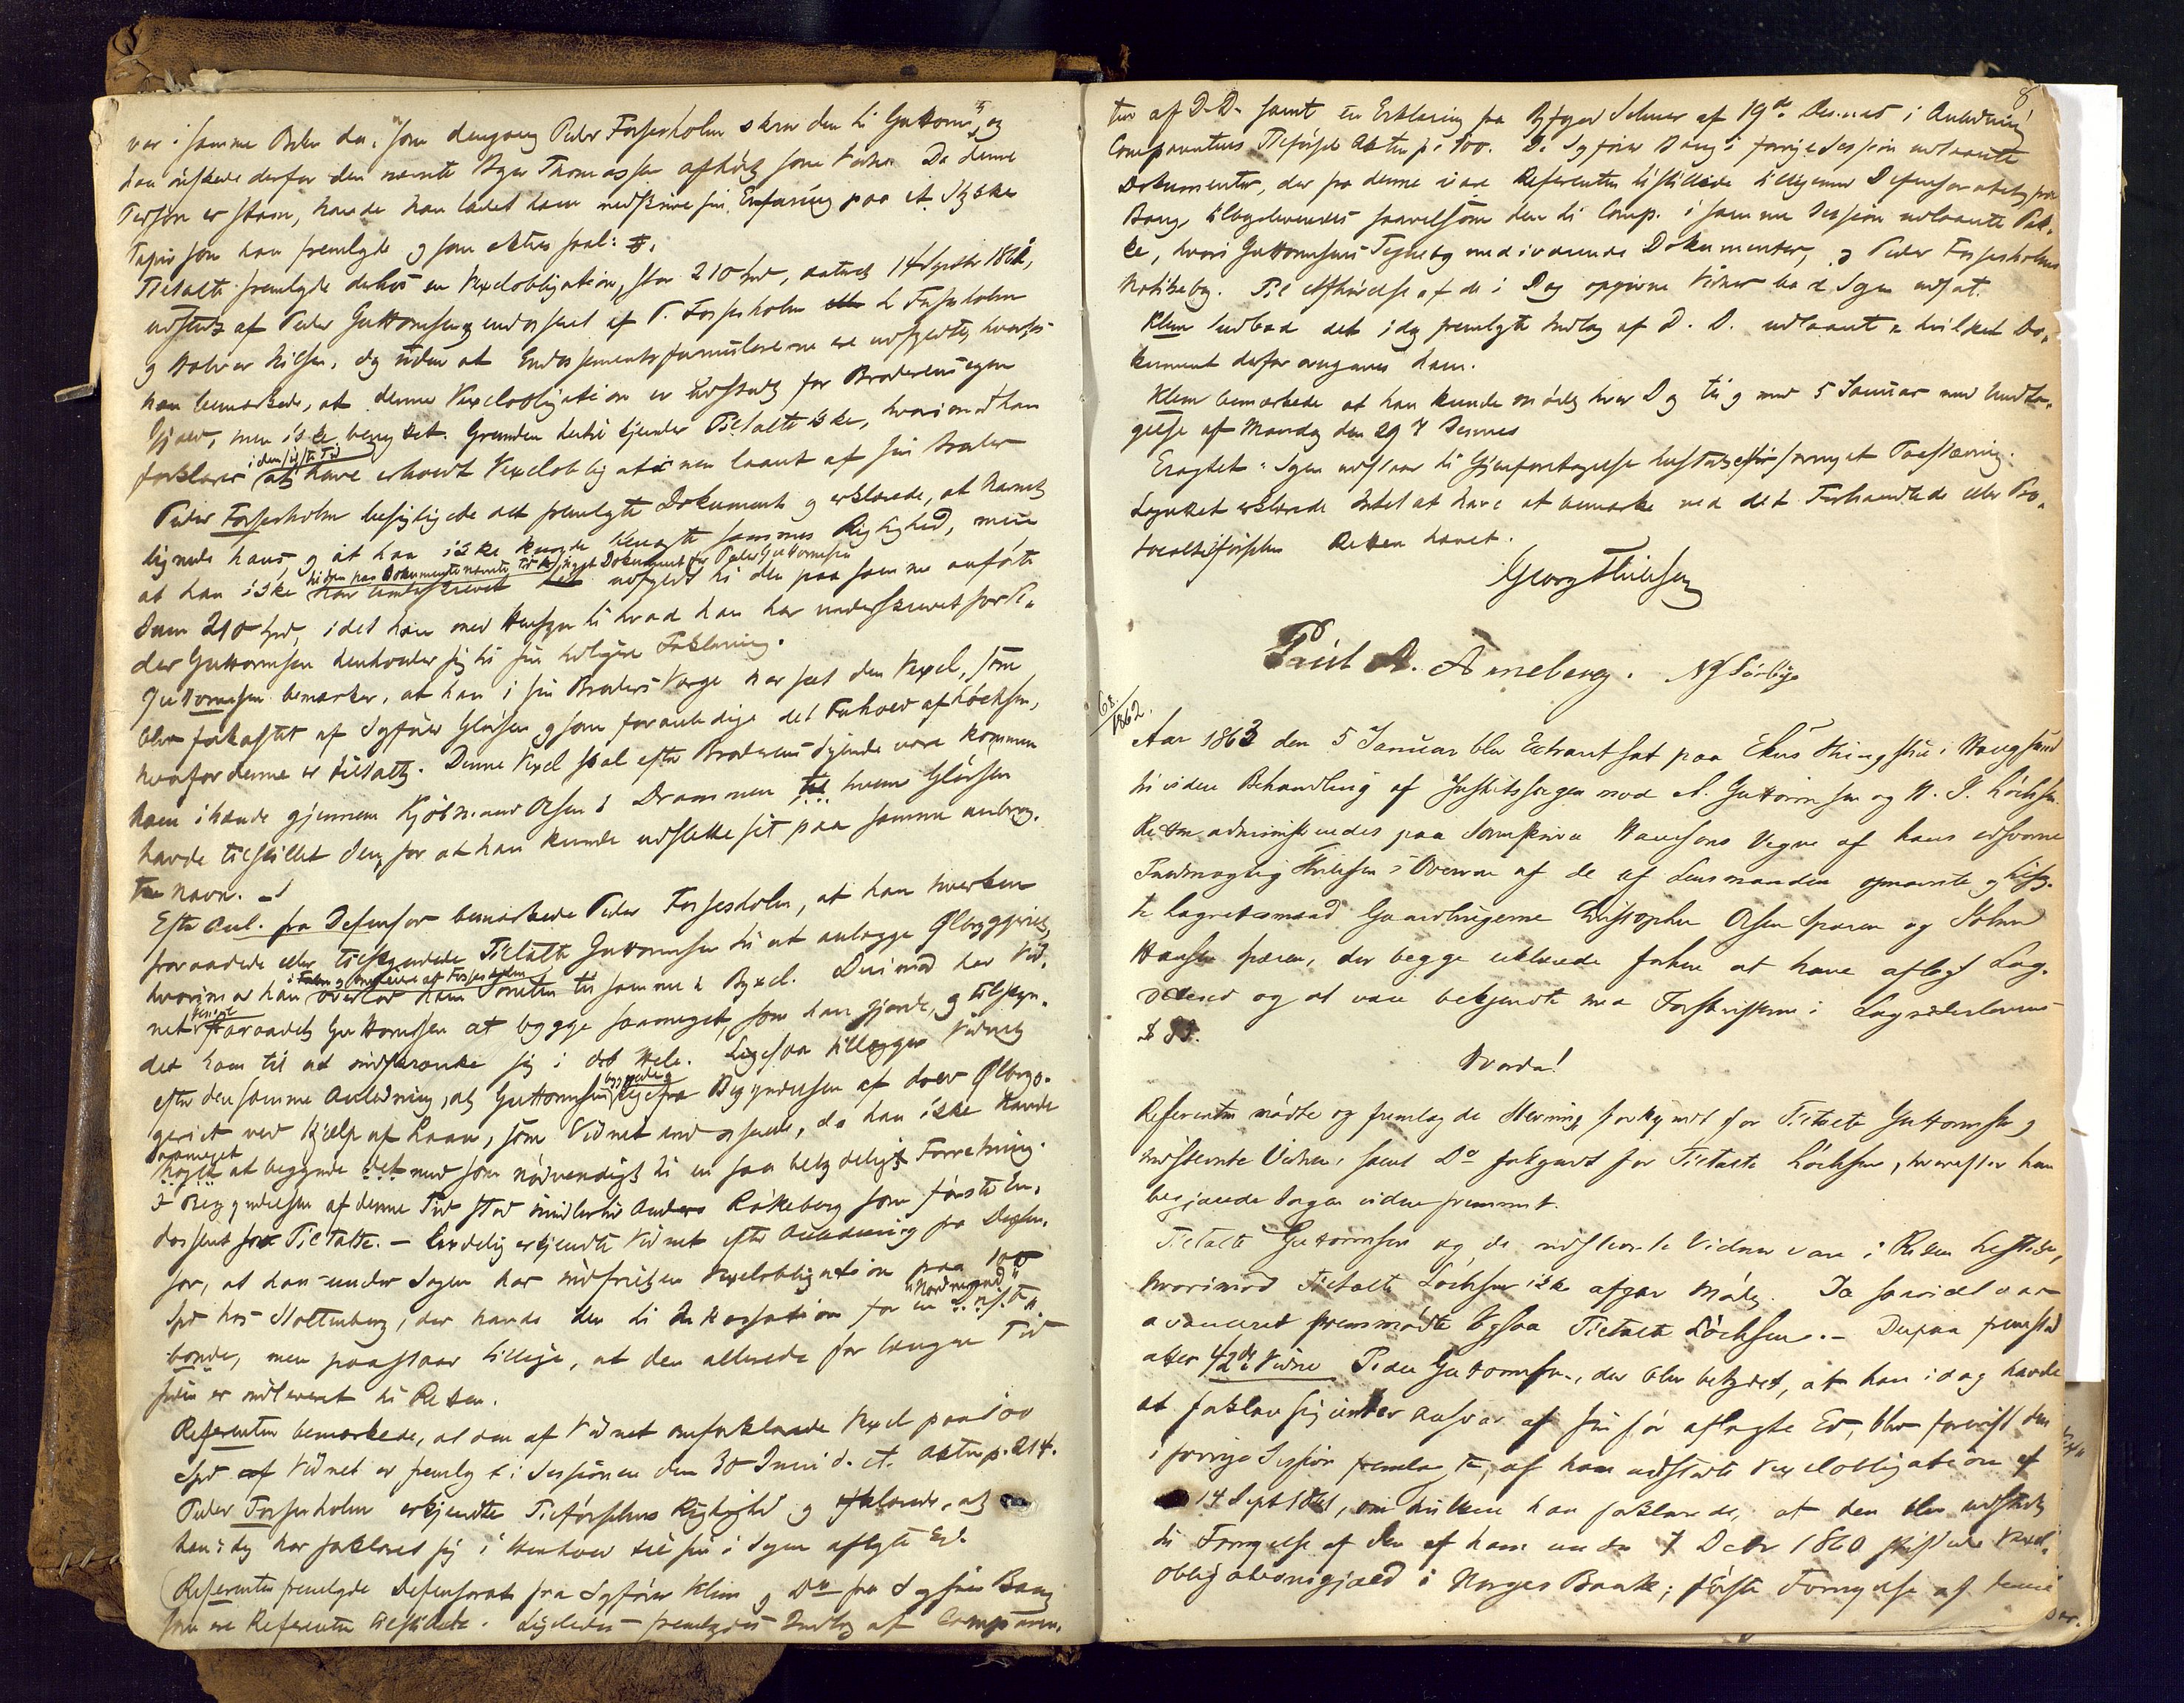 var i samme Orden da "som dengang Peder Forsesholm skrev den til Guttorms", og
han ønskede derfor den nævnte Byer Thomassen afhørt som Vidne. Da denne
Person er stum, havde han ladet ham nedskrive sin Erfaring paa et Stykke
Papir som han fremlagde og som akteres saal: #.
Tiltalte fremlagde derhos en Vexelobligation, stor 210 Spd, dateret 14 Septbr 1861,
udstedt af Peder Guttormsen endosseret af P. Forsesholm
og Halvor Nilsen, dog uden at Endossementsformularerne ere udfyldte, hvorhos
han bemærkede, at denne Vexelobligation er udstedt for Broderens egen
Gjæld, men ikke benyttet. Grunden hertil kjender Tiltalte ikke, hvorimod han
forklarer i den sidste Tid at have erholdt Vexelobligationen laant af sin Broder
Peder Forsesholm besigtigede det fremlagte Dokument og erklærede, at Navnet
lignede hans, og at han ikke kunde benægte sammes Rigtighed, men
at han ikke hiden paa Dokumentet nævnte Tid har underskrevet noget Dokument for Peder Guttormsen udfyldt til den paa samme anførte
Sum 210 Spd, idet han med Hensyn til hvad han har underskrevet for Pe-
der Guttormsen henholder sig til sin tidligere Forklaring.
Guttormsen bemærker, at han i sin Broders Værge har seet den Vexel, som
blev forkastet af Sagfører Glørsen og som foranledigede det Forhold af Løchsen,
hvorfor denne er tiltalt. Denne Vexel skal efter Broderens Sigende være kommen
ham ihænde gjennem Kjøbmand Olsen i Drammen til hvem Glørsen
havde tilstillet den, for at han kunde udslette sit paa samme anbrag-
te Navn. —
Efter Anl. fra Defensor bemærkede Peder Forsesholm, at han hverken
fraraadede eller tilskyndede Tiltalte Guttormsen til at anlægge Ølbryggeriet,
hvorimod han overlod ham Tomten til samme i Bygsel. Derimod har Vid-
net fraraadet Guttormsen at bygge saameget, som han gjorde, og tilskyn-
det ham til at indskrænke sig i det Hele. Ligesaa tillægger Vidnet
efter den samme Anledning, at Guttormsen byggede lige fra Begyndelsen af dette Ølbryg-
geriet ved Hjælp af Laan, som Vidnet endosserede, da han ikke havde
saameget at begynde det med som nødvendigt til en saa betydelig Forretning.
I Begyndelsen af denne Tid stod imidlertid Anders Røkeberg som første En-
dossent for Tiltalte. — Endelig erkjendte Vidnet efter Anledning fra Defen-
sor, at han under Sagen har indfriet en Vexelobligation paa 100
Spd hos Stoltenberg, der havde den til Inkassation for en "Nordmand"
bonde, men paastaar tillige, at den allerede for længere Tid
siden er indleveret til Retten.
Referenten bemærkede, at den af Vidnet omforklarede Vexel paa 100
Spd af Vidnet er fremlagt i Sessionen den 30 Juni d. A. Aktens p. 214.
Peder Forsesholm erkjendte Tilførselens Rigtighed og erklærede, at
han idag har forklaret sig i Henhold til sin i Sagen aflagte Ed.
Referenten fremlagde Defensorat fra Sagfører Klem og Do fra Sagfører Bang
som ere Referenten tilstillede. Ligeledes fremlagdes Indlæg af Comparen-
8
ten af D. D. samt en Erklæring fra Byfoged Selmer af 19de Dennes i Anledning
Comparentens Tilførsel Aktens p: 100. De Sagfører Bang i forrige Session udlaante
Dokumenter, der fra denne vare Referenten tilstillede tilligemed Defensoratet fra
Bang, tilbageleveredes saavelsom den til Comp. i samme Session udlaante Pak-
ke, hvori Guttormsens Tegnebog med iværende Dokumenter, og Peder Forsesholms
Notitsebog. Til Afhørelse af de i Dag opgivne Vidner bad Sagen udsat.
Klem udbad det idag fremlagte Indlæg af D. D. udlaant, hvilket Do-
kument derfor overgaves ham.
Klem bemærkede at han kunde møde hver Dag til og med 5 Januar med Undta-
gelse af Mandag den 29de Dennes
Eragtet: Sagen udstaar til Gjenforetagelse hersteds efter fornyet Paastævning.
Lagrettet erklærede Intet at have at bemærke ved det Forhandlede eller Pro-
tocoltilførselen Retten hævet.
Georg Thilesen
Paul A. Anneberg. N J Sørbye
68/1862.
Aar 1863 den 5 Januar blev Extraret sat paa Ekers Thingstue i Hougsund
til videre Behandling af Justitssagen mod A. Guttormsen og N. J. Løchsen.
Retten administreredes paa Sorenskriver Hansons Vegne af hans edsvorne
Fuldmægtig Thilesen i Overvær af de af Lensmanden opnævnte og tilsag-
te Lagrettesmænd Gaardbrugerne Christopher Olsen Sparen og John
Hansen Sparen, der begge erklærede forhen at have aflagt Lag-
rettesed og at være bekjendte med Forskrifterne i Lagrettelovens
§ 83.
Hvorda!
Referenten mødte og fremlagde Stevning forkyndt for Tiltalte Guttormsen og
indstevnte Vidner, samt Do forkyndt for Tiltalte Løchsen, hvorefter han
begjærede Sagen videre fremmet.
Tiltalte Guttormsen og de indstevnte Vidner vare i Retten tilstede,
hvorimod Tiltalte Løchsen ikke afgav Møde. Da saavidt var
avanceret fremmødte ogsaa Tiltalte Løchsen. — Derpaa fremstod
atter 42de Vidne Peder Guttormsen, der blev betydet, at han idag havde
at forklare sig under Ansvar af sin før aflagte Ed, blev forevist den
i forrige Session fremlagte, af ham udstedte Vexelobligation af
14 Sept 1861, om hvilken han forklarede, at den blev udstedt
til Fornyelse af den af ham under 7 Decbr 1860 stiftede Vexel-
obligationsgjæld i Norges Bank; første Fornyelse af denne